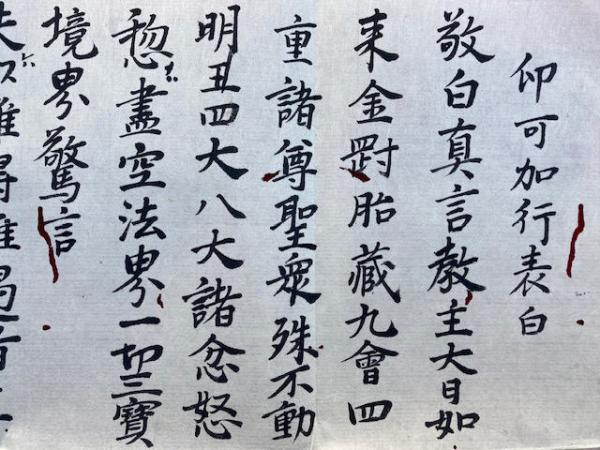 印可加行表白
敬白真言教主大日如
来金㓻胎藏九會四
重諸尊聖衆殊不動
明王四大八大諸忿怒
惣盡空法界一切三寶
境界驚言